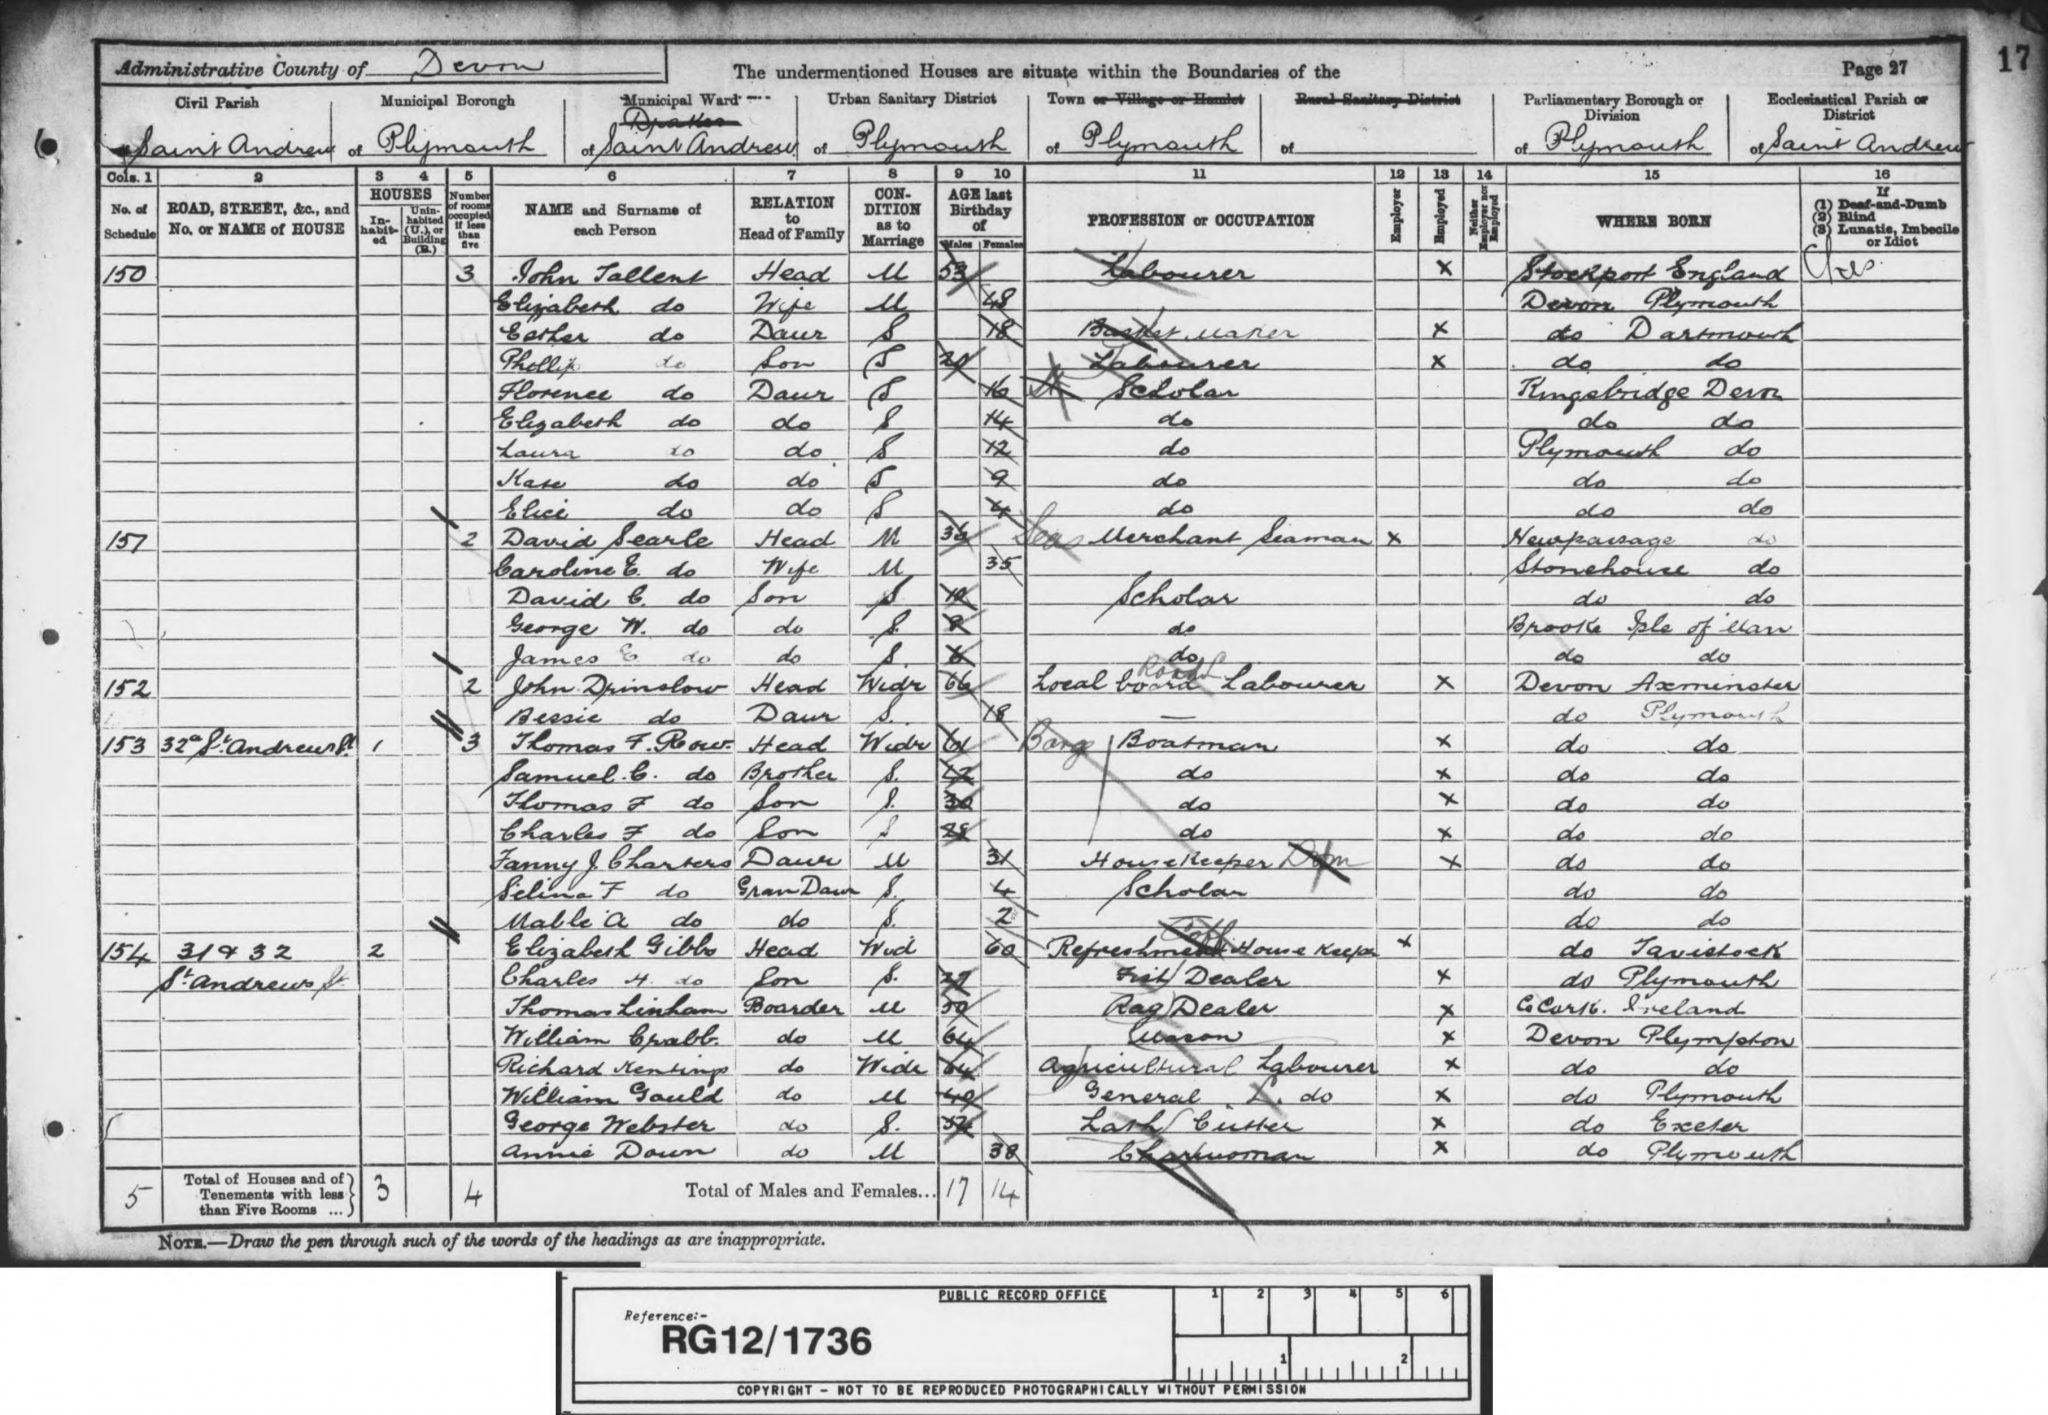 17
Administrative County of Devon
The undermentioned Houses are situate within the Boundaries of the
Page 27
Civil Parish Municipal Borough Municipal Ward Urban Sanitary District Town or Village or Hamlet Rural Sanitary District Parliamentary Borough or Division Ecclesiastical Parish or District
Drakes
Saint Andrew of Plymouth of Saint Andrew of Plymouth of Plymouth of of Plymouth of Saint Andrew
Cols. 1 2 3 4 5 6 7 8 9 10 11 12 13 14 15 16
No. of Schedule ROAD, STREET, &c., and No. or NAME of HOUSE HOUSES Inhabited Uninhabited (U.), or Building (B.) Number of rooms occupied if less than five NAME and Surname of each Person RELATION to Head of Family CONDITION as to Marriage AGE last Birthday of Males Females PROFESSION or OCCUPATION Employer Employed Neither Employer nor Employed WHERE BORN If (1) Deaf-and-Dumb (2) Blind (3) Lunatic, Imbecile or Idiot
150 3 John Tallent Head M 53 Labourer x Stockport England Yes
Elizabeth do Wife M 48 Devon Plymouth
Esther do Daur S 18 Basket Maker x do Dartmouth
Phillip do Son S 20 Labourer x do do
Florence do Daur S 16 Scholar Kingsbridge Devon
Elizabeth do do S 14 do do do
Laura do do S 12 do Plymouth do
Kate do do S 9 do do do
Elice do do S 4 do do do
151 2 David Searle Head M 36 Seas Merchant Seaman x Newpassage do
Caroline E. do Wife M 35 Stonehouse do
David C. do Son S 10 Scholar do do
George W. do do S. 8 do Brooke Isle of Man
James E do do S. 6 do do do
152 2 John Drinslow Head Widr 66 Local board Road L Labourer x Devon Axminster
Bessie do Daur S. 18 — do Plymouth
153 32a St Andrew St. 1 3 Thomas F. Row. Head Widr 61 Barge Boatman x do do
Samuel C. do Brother S. 42 do x do do
Thomas F do Son S. 30 do x do do
Charles F do Son S 28 do x do do
Fanny J. Charters Daur M 31 Housekeeper Dom x do do
Selina F do Gran Daur S. 4 Scholar do do
Mable A do do S. 2 — do do
154 31 & 32 2 Elizabeth Gibbs Head Wid 60 Refreshment House Keeper x do Tavistock
St Andrews St Charles H. do Son S. 27 Fish Dealer x do Plymouth
Thomas Linham Boarder M 50 Rag Dealer x C Cork. Ireland
William Crabb. do M 64 Mason x Devon Plympton
Richard do Widr 64 Agricultural Labourer x do do
William Gould do M 40 General L. do x do Plymouth
George Webster do S. 54 Lath Cutter x do Exeter
Annie Down do M 38 Charwoman x do Plymouth
5 Total of Houses and of Tenements with less than Five Rooms ... 3 4 Total of Males and Females... 17 14
NOTE.—Draw the pen through such of the words of the headings as are inappropriate.
PUBLIC RECORD OFFICE
1 2 3 4 5 6
Reference:-
RG12/1736
1 2
COPYRIGHT - NOT TO BE REPRODUCED PHOTOGRAPHICALLY WITHOUT PERMISSION